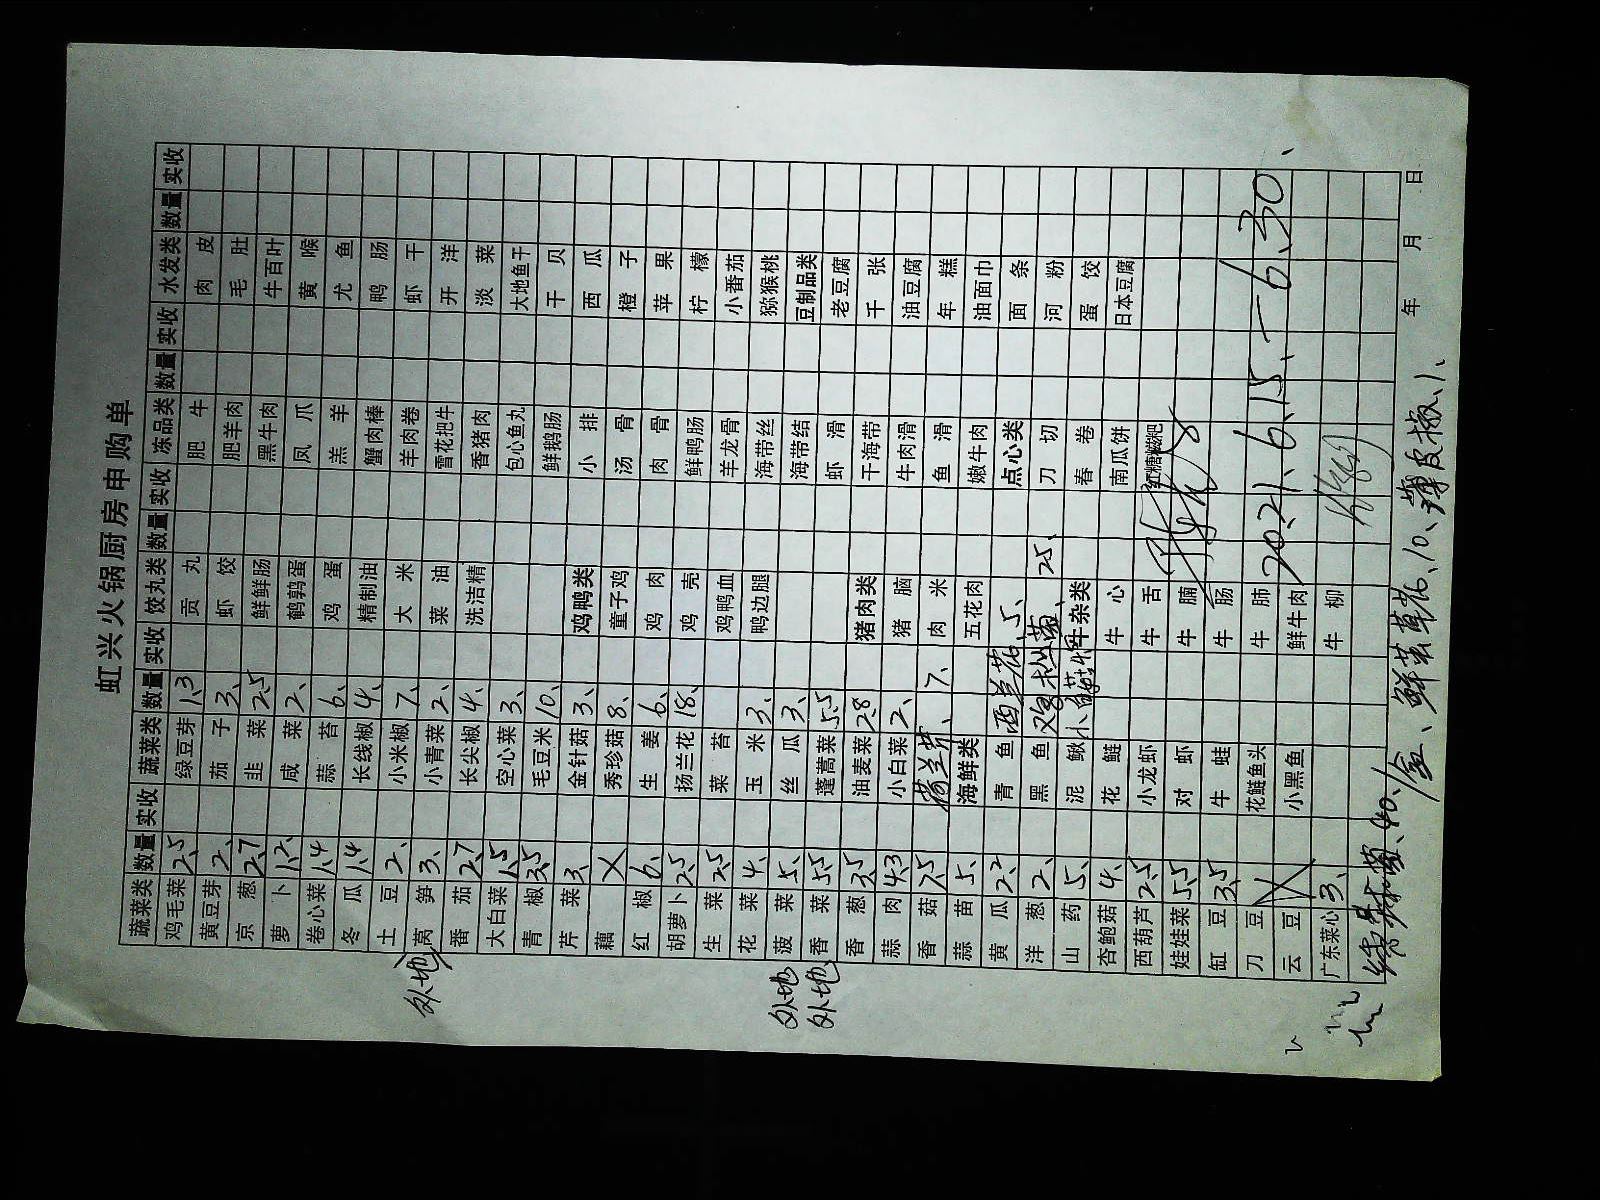 虹兴火锅厨房申购单
蔬菜类 数量 实收 蔬菜类 数量 实收 饺丸类 数量 实收 冻品类 数量 实收 水发类 数量 实收
鸡毛菜 2.5 绿豆芽 1.3 贡丸 肥牛 肉皮
黄豆芽 2、 茄子 3、 虾饺 肥羊肉 毛肚
京葱 2.7 韭菜 2.5 鲜鲜肠 黑牛肉 牛百叶
萝卜 1.2、 咸菜 2、 鹌鹑蛋 凤爪 黄喉
卷心菜 1.4 蒜苔 6、 鸡蛋 羔羊 尤鱼
冬瓜 1.4 长线椒 4、 精制油 蟹肉棒 鸭肠
土豆 2、 小米椒 7、 大米 羊肉卷 虾干
外地 莴笋 3、 小青菜 2、 菜油 雪花把牛 开洋
番茄 2.7 长尖椒 4、 洗洁精 香猪肉 淡菜
大白菜 1.5 空心菜 3、 包心鱼丸 大地鱼干
青椒 3.5 毛豆米 10、 鲜鹅肠 干贝
芹菜 3、 金针菇 3、 鸡鸭类 小排 西瓜
藕 秀珍菇 8、 童子鸡 汤骨 橙子
红椒 6、 生姜 6、 鸡肉 肉骨 苹果
胡萝卜 2.5 扬兰花 18、 鸡壳 鲜鸭肠 柠檬
生菜 2.5 菜苔 鸡鸭血 羊龙骨 小番茄
花菜 4、 玉米 3、 鸭边腿 海带丝 猕猴桃
外地 菠菜 5、 丝瓜 3、 海带结 豆制品类
外地 香菜 5.5 蓬蒿菜 5.5 虾滑 老豆腐
香葱 3.5 油麦菜 2.8 猪肉类 干海带 千张
蒜肉 4.3 小白菜 2、 猪脑 牛肉滑 油豆腐
香菇 7.5 7、 肉米 鱼滑 年糕
蒜苗 5、 海鲜类 五花肉 嫩牛肉 油面巾
黄瓜 2.2 青鱼 西兰花 5、 点心类 面条
洋葱 2、 黑鱼 25、 刀切 河粉
山药 5、 泥鳅 牛杂类 春卷 蛋饺
杏鲍菇 4、 花鲢 牛心 南瓜饼 日本豆腐
西葫芦 2.5 小龙虾 牛舌 红糖糍粑
娃娃菜 5.5 对虾 牛腩
缸豆 3.5 牛蛙 牛肠
刀豆 花鲢鱼头 牛肺 2021、6、15、—6、30、
云豆 小黑鱼 鲜牛肉
广东菜心 3、 牛柳
年 月 日
40、 1盒、鲜草菇、10、薄皮椒、1、